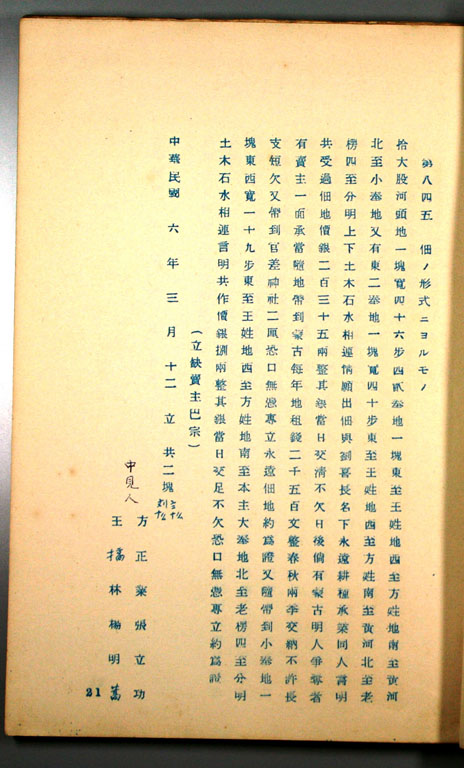 第八四五　佃ノ形式ニヨルモノ
拾大股河頭地一塊寬四十六步西貳㘵地一塊東至王姓地西至方姓地南至黄河
北至小㘵地又有東二㘵地一塊寬四十步東至王姓地西至方姓南至黄河北至老
楞四至分明上下土木石水相連情願出佃與劉喜長名下永遠耕種承菜同人言明
共受過佃地價銀二百三十五兩整其銀當日交清不欠日後倘有蒙古明人爭奪者
有賣主一面承當隨地帶到蒙古每年地租錢二千五百文整春秋兩季交納不許長
支短欠又帶到官差神社二厘恐口無憑專立永遠佃地約爲證又隨帶到小㘵地一
塊東西寬一十九步東至王姓地西至方姓地南至本主大㘵地北至老楞四至分明
土木石水相連言明共作價銀捌兩整其銀當日交足不欠恐口無憑專立約爲證
（立缺賣主巴宗）
中華民國　六年三月十二立共二塊
中見人
方正　張立功
王　林楊明
21